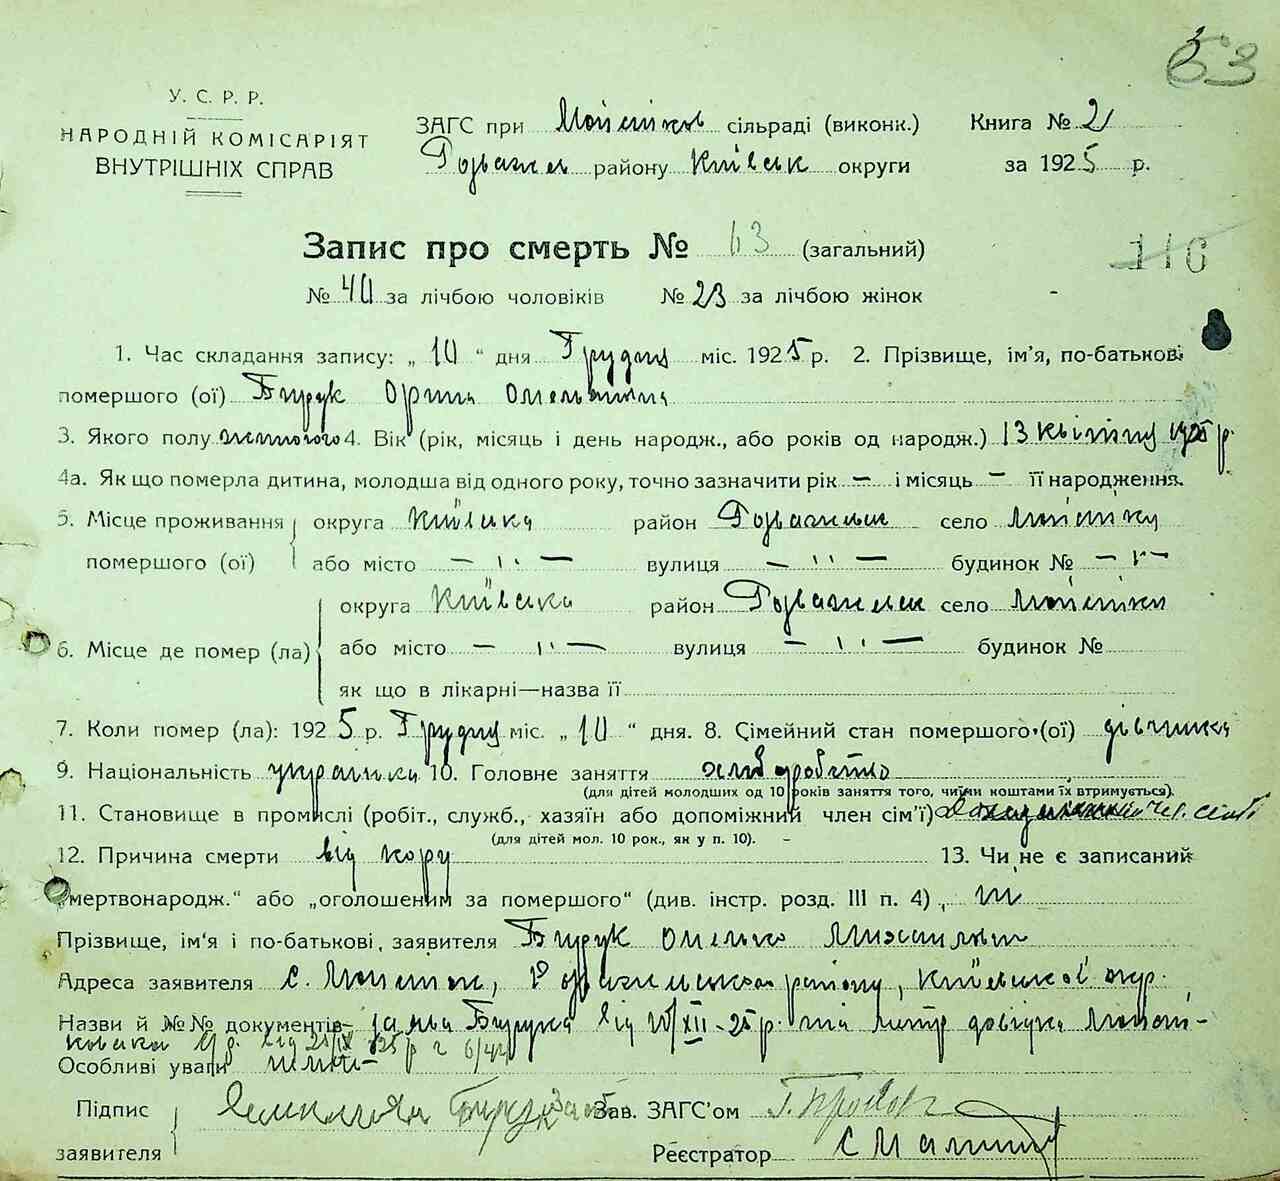 63
У. С. Р. Р.
НАРОДНІЙ КОМІСАРІЯТ
ВНУТРІШНІХ СПРАВ
ЗАГС при сільраді (виконк.) Книга № 2
району Київськ округи за 1925 р.
Запис про смерть № 63 (загальний)
116
№ 40 за лічбою чоловіків № 23 за лічбою жінок
1. Час складання запису: „ 10 “ дня Грудня міс. 1925 р. 2. Прізвище, ім'я, по-батькові
помершого (ої) Бирук Орина Омельянина
3. Якого полу жиночого 4. Вік (рік, місяць і день народж., або років од народж.) 13 квітня 1925 р.
4а. Як що померла дитина, молодша від одного року, точно зазначити рік — і місяць — її народження.
5. Місце проживання округа Київська район село
помершого (ої) або місто — " — вулиця — " — будинок № — " —
округа Київська район село
6. Місце де помер (ла) або місто — " — вулиця — " — будинок №
як що в лікарні—назва її
7. Коли помер (ла): 1925 р. Грудня міс. „ 10 “ дня. 8. Сімейний стан помершого (ої) дівчинка
9. Національність українка 10. Головне заняття хліборобство
(для дітей молодших од 10 років заняття того, чиїми коштами їх втримується).
11. Становище в промислі (робіт., служб., хазяїн або допоміжний член сім'ї) чл. сім'ї
(для дітей мол. 10 рок., як у п. 10). –
12. Причина смерти від кору 13. Чи не є записаний
„мертвонародж.“ або „оголошеним за помершого“ (див. інстр. розд. III п. 4) , ні
Прізвище, ім'я і по-батькові, заявителя Бирук Омелько
Адреса заявителя с. району, Київської окр.
Назви й №№ документів заява Бирука від 10/XII-25 р. та довідка
від
Особливі уваги
Підпис Зав. ЗАГС'ом
заявителя Реєстратор